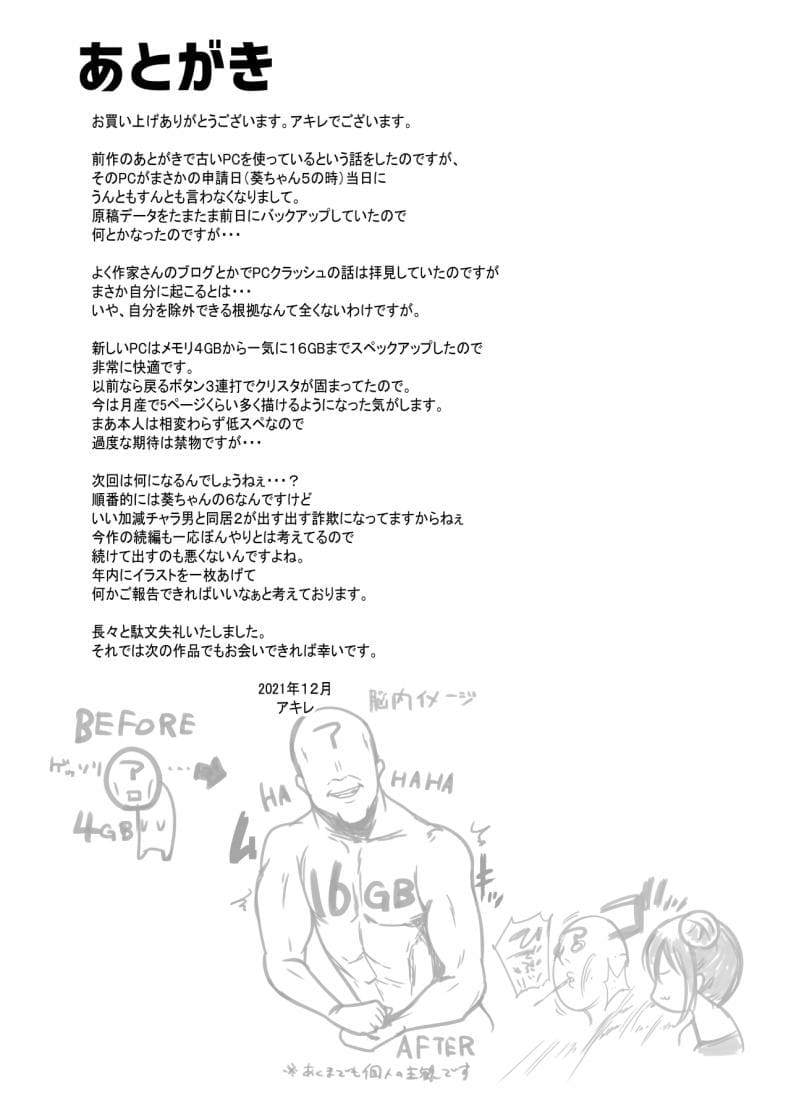 あとがき
お買い上げありがとうございます。アキレでございます。
前作のあとがきで古いPCを使っているという話をしたのですが、
そのPCがまさかの申請日（葵ちゃん５の時）当日に
うんともすんとも言わなくなりまして。
原稿データをたまたま前日にバックアップしていたので
何とかなったのですが・・・
よく作家さんのブログとかでPCクラッシュの話は拝見していたのですが
まさか自分に起こるとは・・・
いや、自分を除外できる根拠なんて全くないわけですが。
新しいPCはメモリ４GBから一気に１６GBまでスペックアップしたので
非常に快適です。
以前なら戻るボタン３連打でクリスタが固まってたので。
今は月産で5ページくらい多く描けるようになった気がします。
まあ本人は相変わらず低スペなので
過度な期待は禁物ですが・・・
次回は何になるんでしょうねぇ・・・？
順番的には葵ちゃんの６なんですけど
いい加減チャラ男と同居２が出す出す詐欺になってますからねぇ
今作の続編も一応ぼんやりとは考えてるので
続けて出すのも悪くないんですよね。
年内にイラストを一枚あげて
何かご報告できればいいなぁと考えております。
長々と駄文失礼いたしました。
それでは次の作品でもお会いできれば幸いです。
2021年１２月
アキレ
脳内イメージ
BEFORE
ゲッソリ
ア
ロ
・・・
4GB
ア
HA
HAHA
ムキッ
16GB
AFTER
※あくまでも個人の主観です